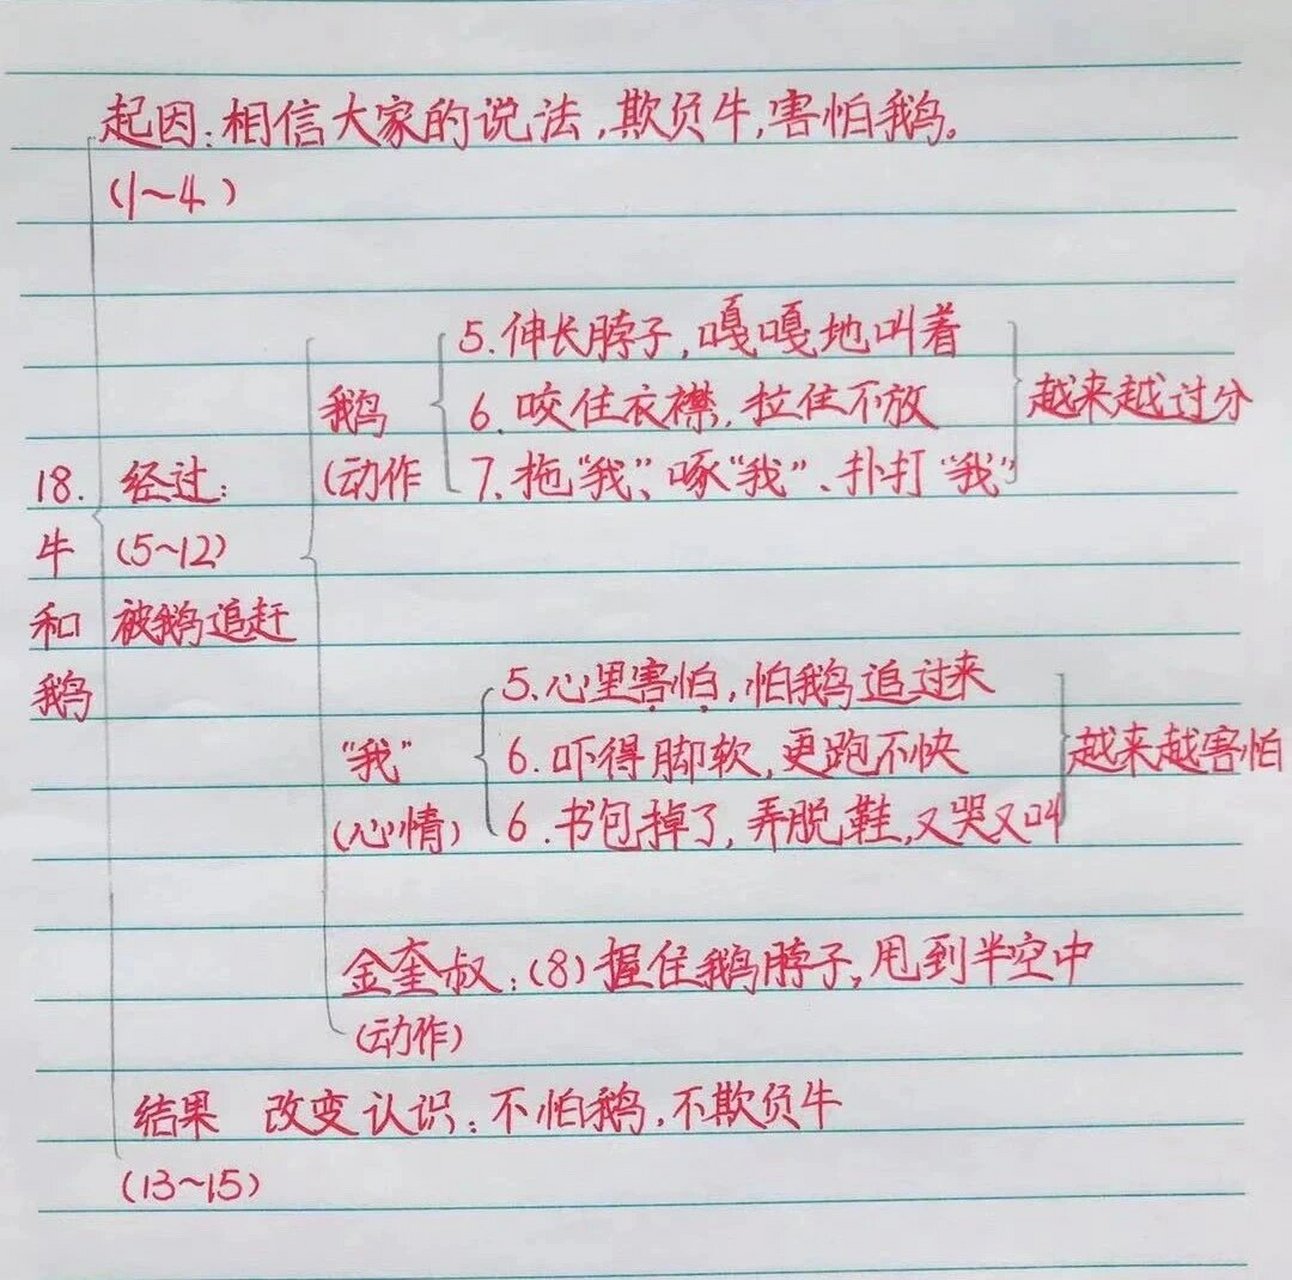 起因：相信大家的说法，欺负牛，害怕鹅。
(1~4)
5.伸长脖子，嘎嘎地叫着
鹅
6.咬住衣襟，拉住不放
越来越过分
18.
经过：
(动作
7.拖“我”、啄“我”、扑打“我”
牛
(5~12)
和
被鹅追赶
鹅
5.心里害怕，怕鹅追过来
“我”
6.吓得脚软，更跑不快
越来越害怕
(心情)
6.书包掉了，弄脱鞋，又哭又叫
金奎叔：(8)握住鹅脖子，甩到半空中
(动作)
结果 改变认识：不怕鹅，不欺负牛
(13~15)